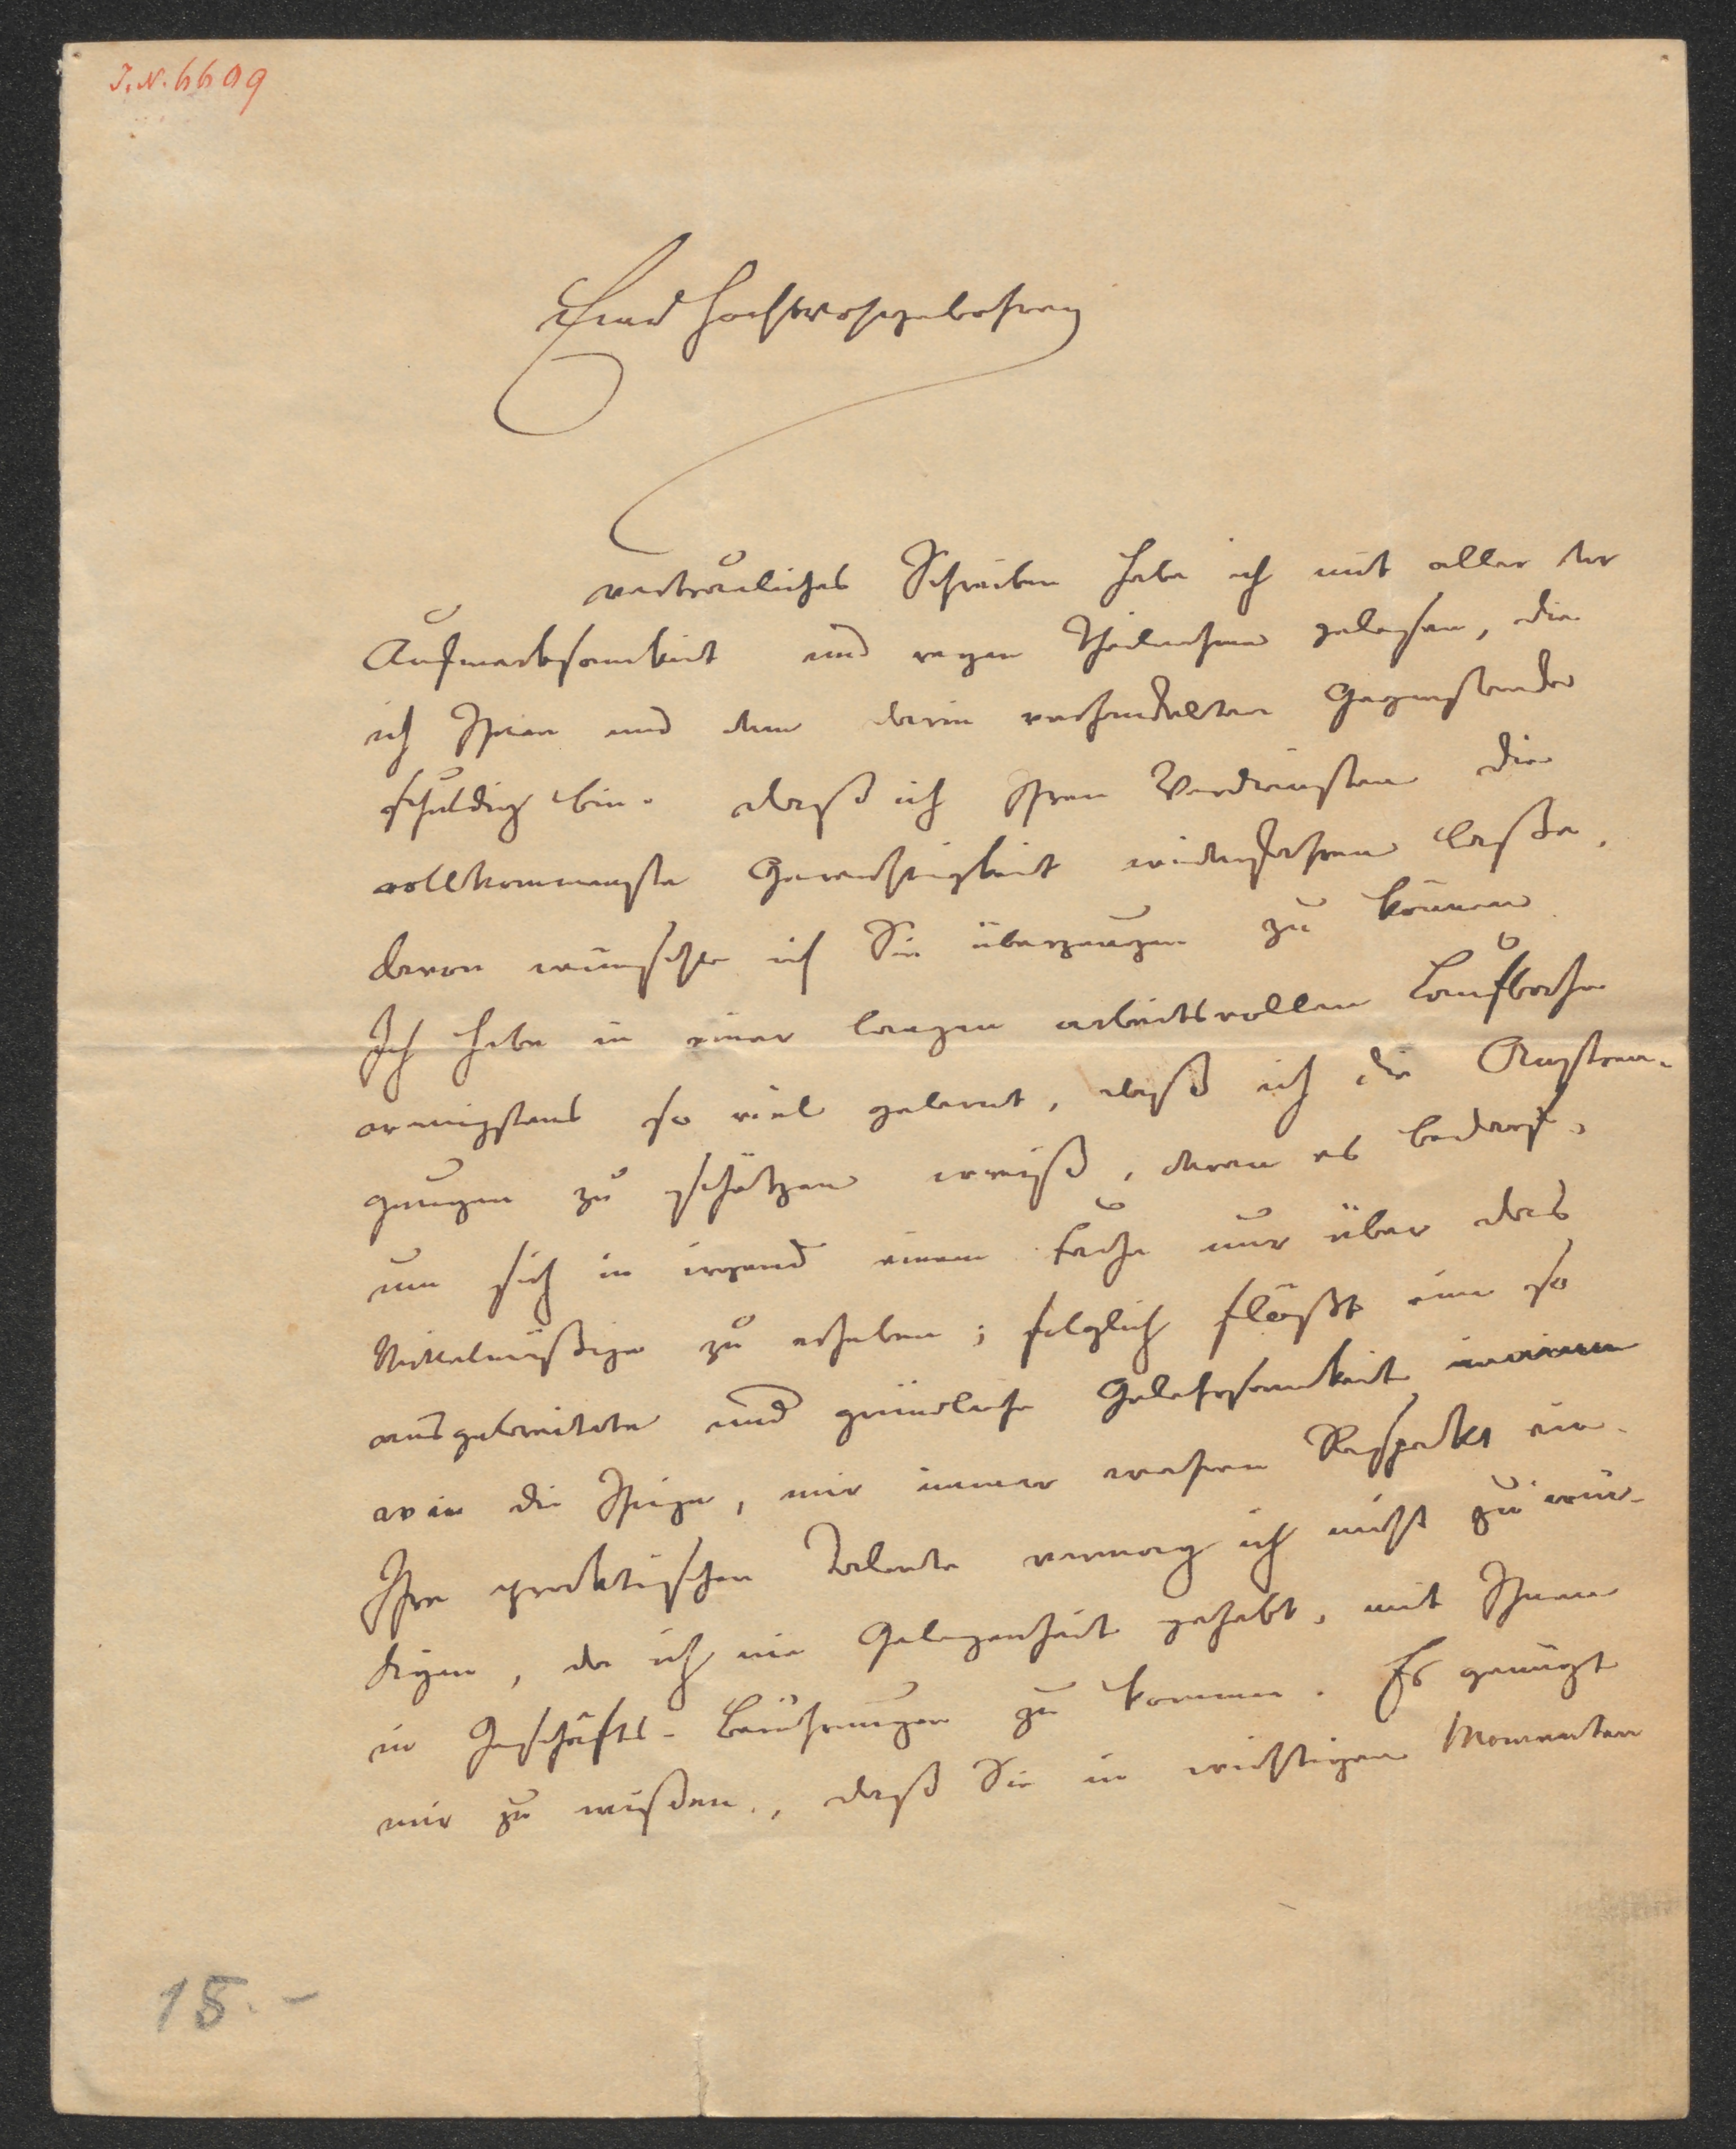 I. N. 6609
Euer Hochwohlgebohren
vertrauliches Schreiben habe ich mit aller der
Aufmerksamkeit und regen Theilnahme gelesen, die
ich Ihnen und dem darin verhandelten Gegenstande
schuldig bin. Daß ich Ihren Verdiensten die
vollkommenste Gerechtigkeit wiederfahren laße,
davon wünschte ich Sie überzeugen zu können
Ich habe in einer langen arbeitsvollen Laufbahn
wenigstens so viel gelernt, daß ich die Anstren-
gungen zu schätzen weiß, deren es bedarf,
um sich in irgend einem Fache nur über das
Mittelmäßige zu erheben; folglich flößt eine so
ausgebreitete und gründliche Gelehrsamkeit
wie die Ihrige, mir immer wahren Respekt ein.
Ihre praktischen Talente vermag ich nicht zu wür-
digen, da ich nie Gelegenheit gehabt, mit Ihnen
in Geschäfts-Berührungen zu kommen. Es genügt
mir zu wißen, daß Sie in wichtigen Momenten
15.-